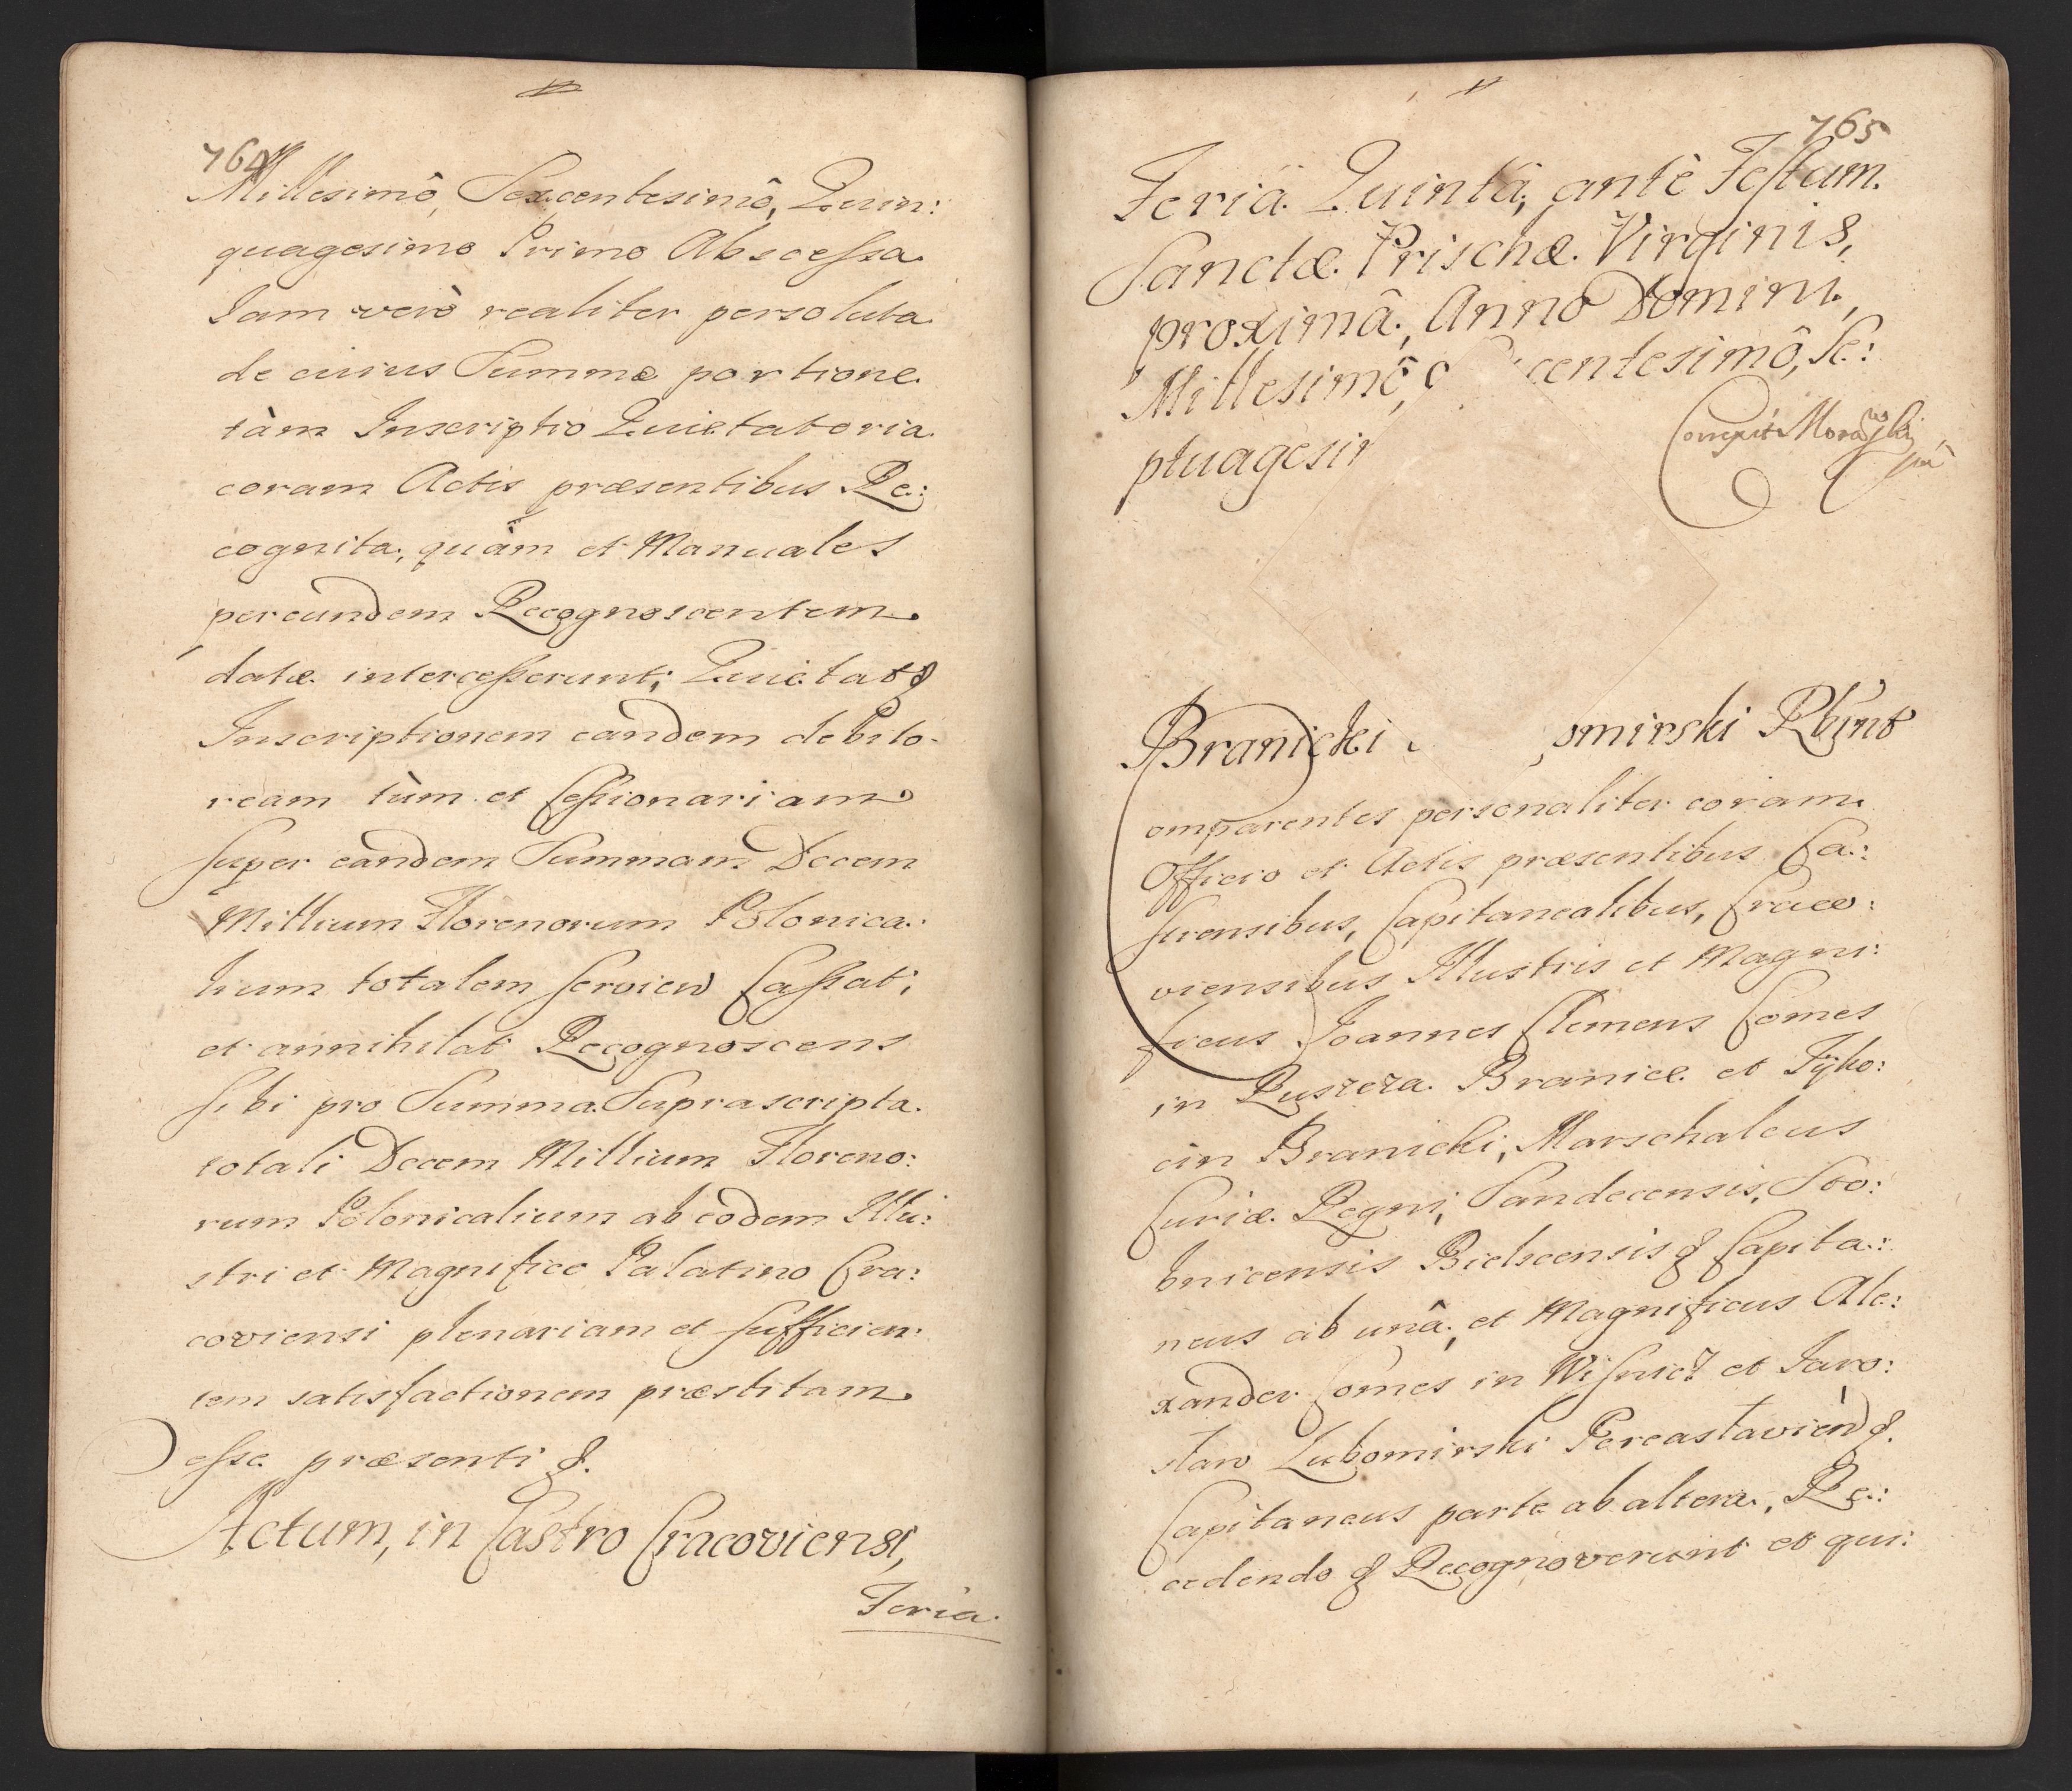 764
Millesimô, Sexcentesimô, Quin:
quagesimo Primo Abscessa.
Iam verò realiter persoluta
de cuius Summæ portione.
tàm Inscriptio Quietatoria.
coram Actis præsentibus Re:
cognita, quàm et Manuales
per eundem Recognoscentem.
datæ intercesserunt; Quietat &
Inscriptionem eandem debito-
ream tùm et Cessionariam
super eandem Summam Decem
Millium Florenorum Polonica:
lium totalem servien Cassat;
et annihilat Recognoscens
sibi pro Summa Suprascripta.
totali Decem Millium Floreno:
rum Polonicalium ab eodem Illu:
stri et Magnifico Palatino Cra:
coviensi plenariam et sufficien:
tem satisfactionem præstitam
esse præsenti &.
Actum, in Castro Cracoviensi,
Feria.
765
Feriâ Quintâ, antè Festum.
Sanctæ. Prischæ. Virginis,
proximâ, Anno Domini,
Millesimô, centesimô, Se:
ptuagesi
Correxit Morawski
Branicki omirski
omparentes personaliter coram.
Officio et Actis præsentibus Ca:
strensibus, Capitanealibus, Craco:
viensibus Illustris et Magni:
ficus Joannes Clemens Comes
in Ruszcza. Branice. et Tyko:
cin Branicki, Marschalcus
Curiæ. Regni, Sandecensis, Sto:
bnicensis Bieliscensis & Capita:
neus ab unâ, et Magnificus Ale:
xander Comes in Wisnicz et Jaro:
slaw Lubomirski Pereaslavien &.
Capitaneus parte ab altera, Re:
cedendo & Recognoverunt et qui: